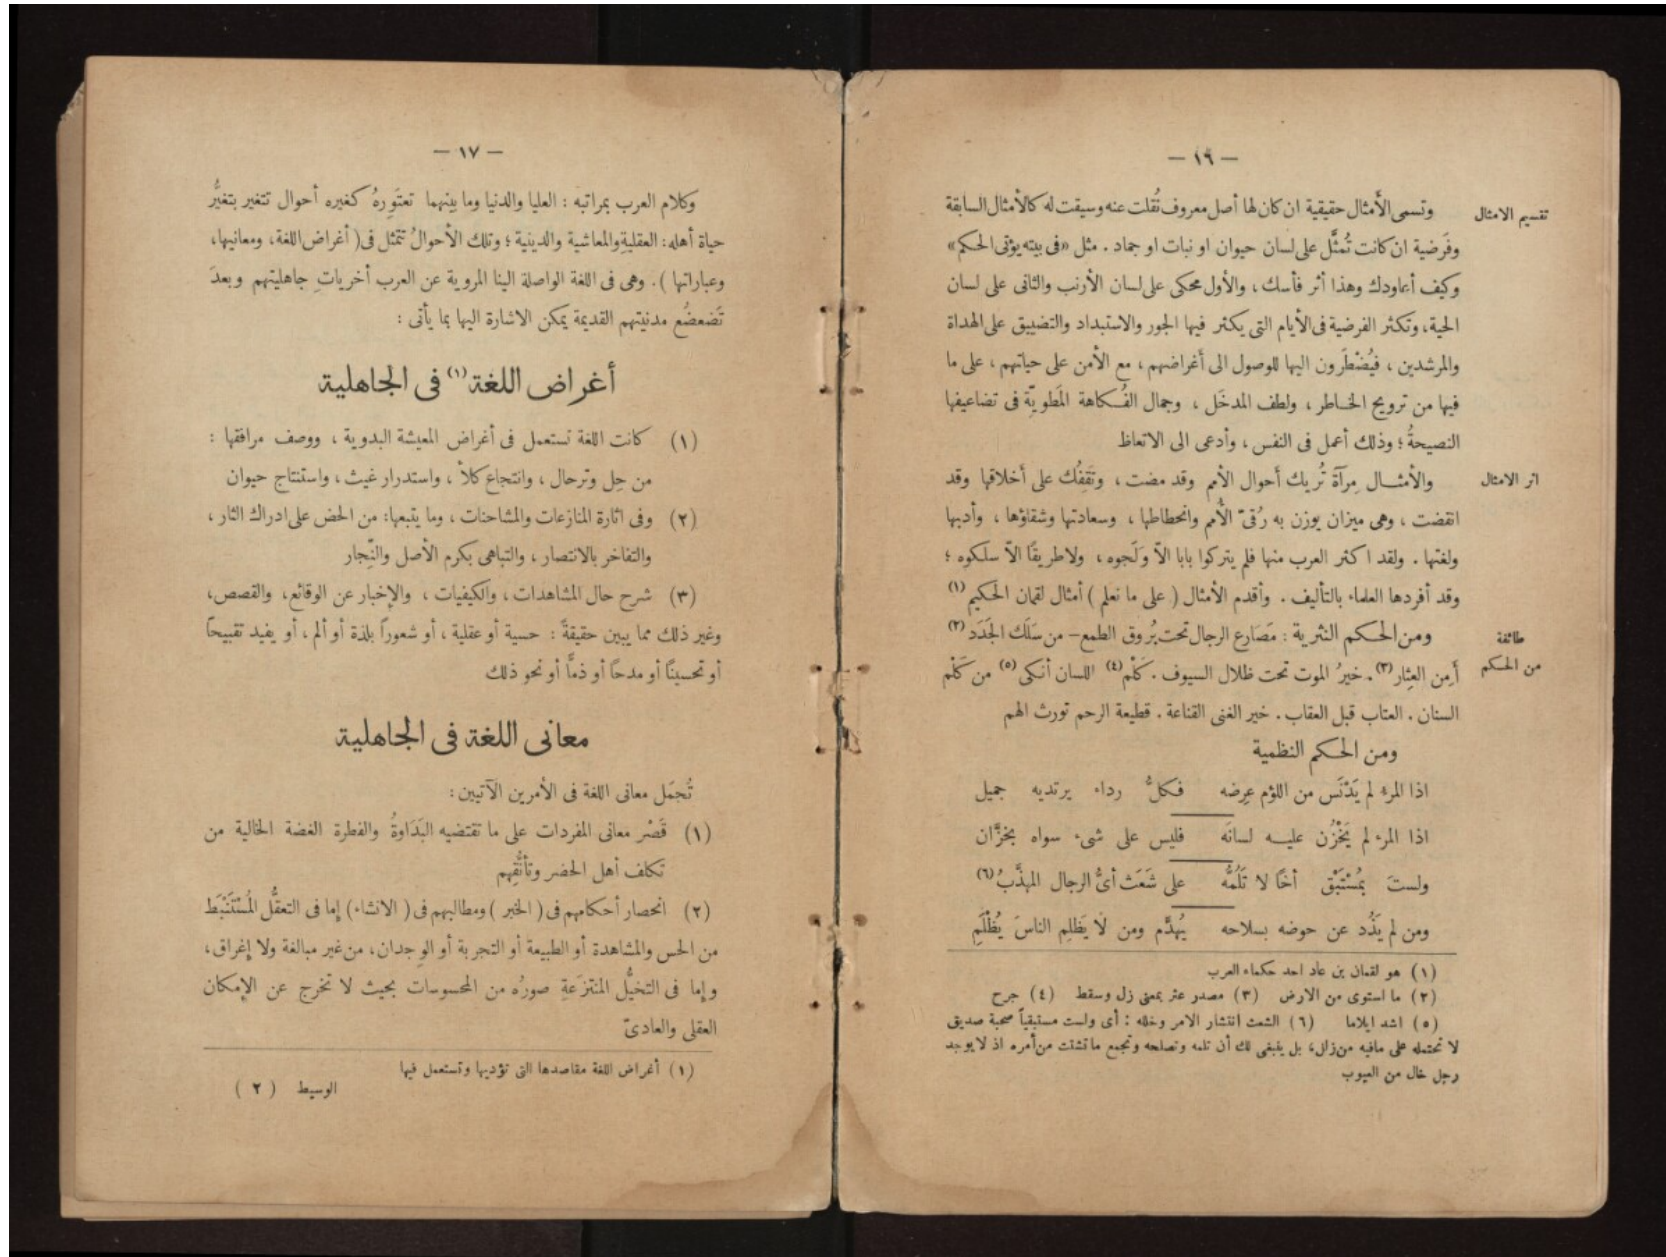 — ١٦ —
تقسيم الامثال
وتسمى الأَمثال حقيقية ان كان لها أصل معروف نُقلت عنه وسيقت له كالأمثال السابقة
وفَرضية ان كانت تُمثَّل على لسان حيوان او نبات او جماد . مثل «فى بيته يؤتى الحكم»
وكيف أعاودك وهذا أثر فأسك ، والأول محكى على لسان الأرنب والثانى على لسان
الحية، وتكثر الفرضية فى الأيام التى يكثر فيها الجور والاستبداد والتضييق على الهداة
والمرشدين ، فيُضْطَرون اليها للوصول الى أَغراضهم ، مع الأمن على حياتهم ، على ما
فيها من ترويح الخاطر ، ولطف المدخَل ، وجمال الفُكاهة المَطويّة فى تضاعيفها
النصيحةُ ؛ وذلك أعمل فى النفس ، وأدعى الى الاتعاظ
اثر الامثال
والأمثال مِرآة تُريك أحوال الأمم وقد مضت ، وتَقِفُك على أخلاقها وقد
انقضت ، وهى ميزان يوزن به رُقىّ الأُمم وانحطاطها ، وسعادتها وشقاؤها ، وأدبها
ولغتها . ولقد اكثر العرب منها فلم يتركوا بابا الاّ وَلَجوه ، ولا طريقًا الاّ سلكوه ؛
وقد أفردها العلماء بالتأليف . وأقدم الأمثال ( على ما نعلم ) أمثال لقمان الحكيم (١)
طائفة
من الحكم
ومن الحكم النثرية : مَصَارِع الرجال تحت بُروق الطمع – من سَلَك الجَدَد (٢)
أَمِن العِثار (٣) . خيرُ الموت تحت ظلال السيوف . كَلْم (٤) اللسان أنكى (٥) من كَلْم
السنان . العتاب قبل العقاب . خير الغنى القناعة . قطيعة الرحم تورث الهم
ومن الحكم النظمية
اذا المرء لم يَدْنَس من اللؤم عِرضه فكلُّ رداء يرتديه جميل
اذا المرء لم يَخْزُن عليه لسانَه فليس على شىء سواه بخزَّان
ولستَ بمُسْتَبْق أخًا لا تَلُمُّه على شَعَث أىُّ الرجال المهذَّبُ (٦)
ومن لم يَذُد عن حوضه بسلاحه يُهدَّم ومن لَا يَظلِم الناسَ يُظْلَمِ
(١) هو لقمان بن عاد احد حكماء العرب
(٢) ما استوى من الارض (٣) مصدر عثر بمعنى زل وسقط (٤) جرح
(٥) اشد ايلاما (٦) الشعث انتشار الامر وخلله : أى ولست مستبقياً صحبة صديق
لا تحتمله على مافيه من زلل، بل ينبغى لك أن تلمه وتصلحه وتجمع ما تشتت من أمره اذ لا يوجد
رجل خال من العيوب
— ١٧ —
وكلام العرب بمراتبه : العليا والدنيا وما بينهما تعتَوِرهُ كغيره أحوال تتغير بتغيُّر
حياة أهله: العقليةِ والمعاشية والدينية ؛ وتلك الأحوالُ تتمثل فى ( أغراض اللغة، ومعانيها،
وعباراتها ) . وهى فى اللغة الواصلة الينا المروية عن العرب أخرياتِ جاهليتهم وبعدَ
تَضعضُع مدنيتهم القديمة يمكن الاشارة اليها بما يأتى :
أغراض اللغة (١) فى الجاهلية
(١) كانت اللغة تستعمل فى أغراض المعيشة البدوية ، ووصف مرافقها :
من حِل وترحال ، وانتجاع كلأ ، واستدرار غيث ، واستنتاج حيوان
(٢) وفى اثارة المنازعات والمشاحنات ، وما يتبعها: من الحض على ادراك الثار ،
والتفاخر بالانتصار ، والتباهى بكرم الأصل والنِّجار
(٣) شرح حال المشاهدات ، والكيفيات ، والإخبار عن الوقائع، والقصص،
وغير ذلك مما يبين حقيقةً : حسية أو عقلية ، أو شعوراً بلذة أو ألم ، أو يفيد تقبيحاً
أو تحسيناً أو مدحاً أو ذمًّا أو نحو ذلك
معانى اللغة فى الجاهلية
تُجمَل معانى اللغة فى الأمرين الآتيين :
(١) قَصْر معانى المفردات على ما تقتضيه البَدَاوةُ والفطرة الغضة الخالية من
تكلف أهل الحضر وتأنُّقِهم
(٢) انحصار أحكامهم فى ( الخبر ) ومطالبهم فى ( الانشاء ) إما فى التعقُّل المُسْتَنْبَط
من الحس والمشاهدة أو الطبيعة أو التجربة أو الوِجدان، من غير مبالغة ولا إغراق،
وإما فى التخيُّل المنتزَعةِ صورُه من المحسوسات بحيث لا تخرج عن الإمكان
العقلى والعادىّ
(١) أغراض اللغة مقاصدها التى تؤديها وتستعمل فيها
الوسيط ( ٢ )